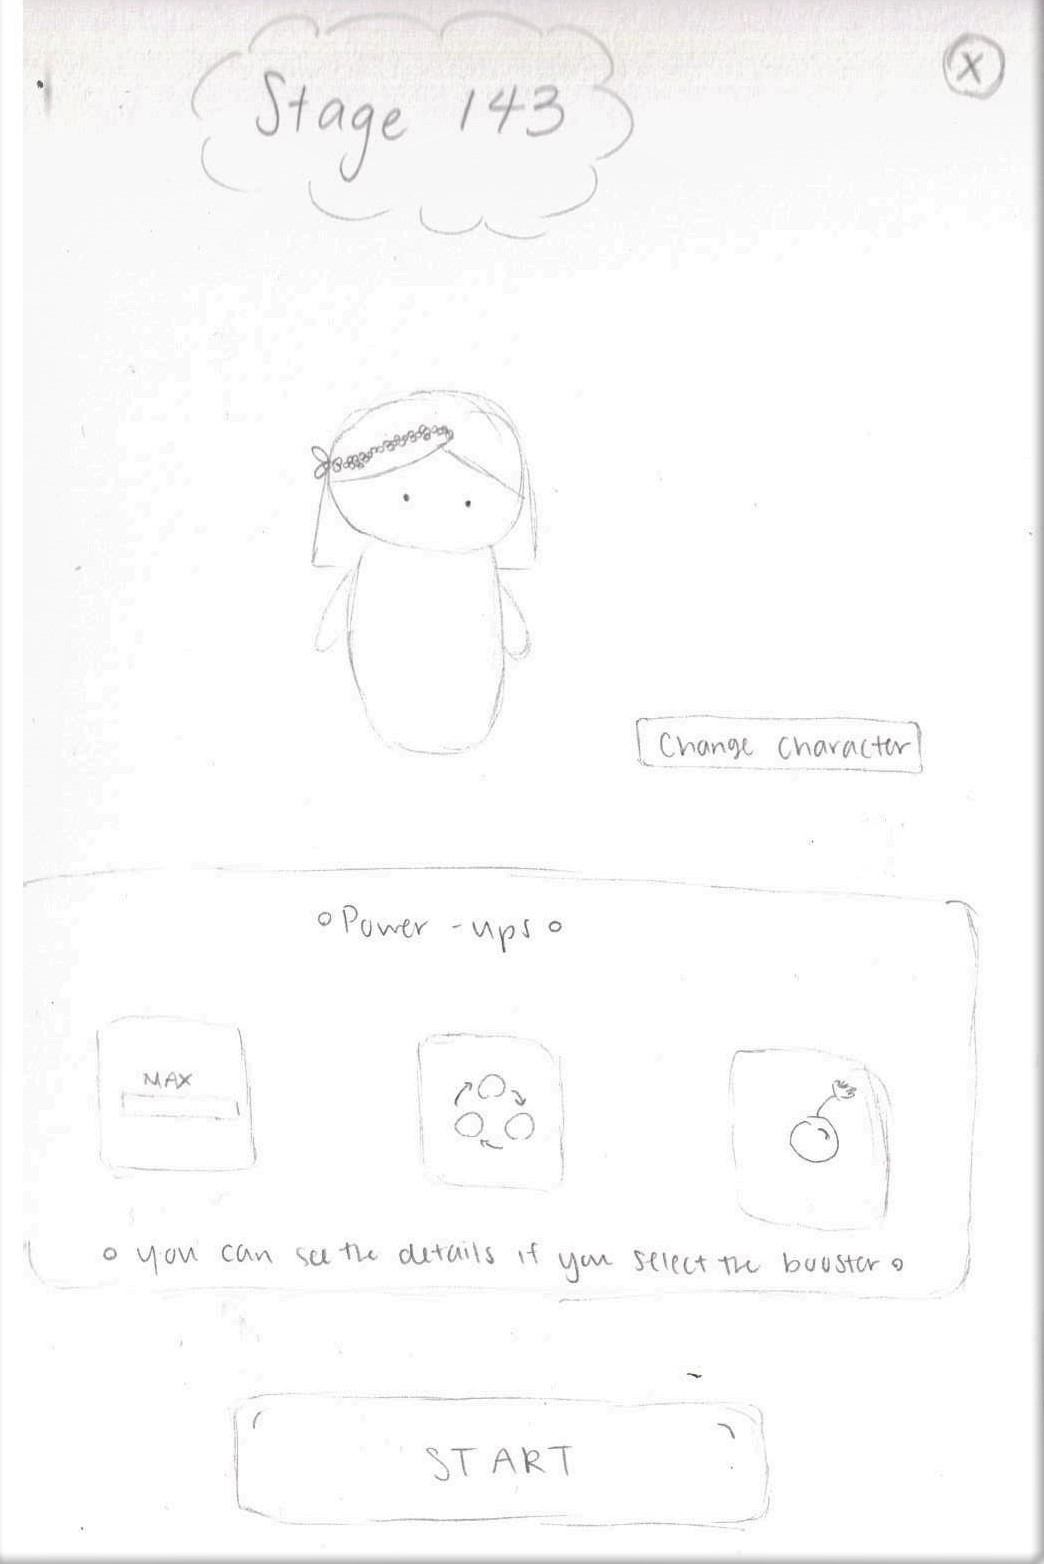 Stage 143
X
Change Character
Power-ups
MAX
you can see the details if you select the booster
START